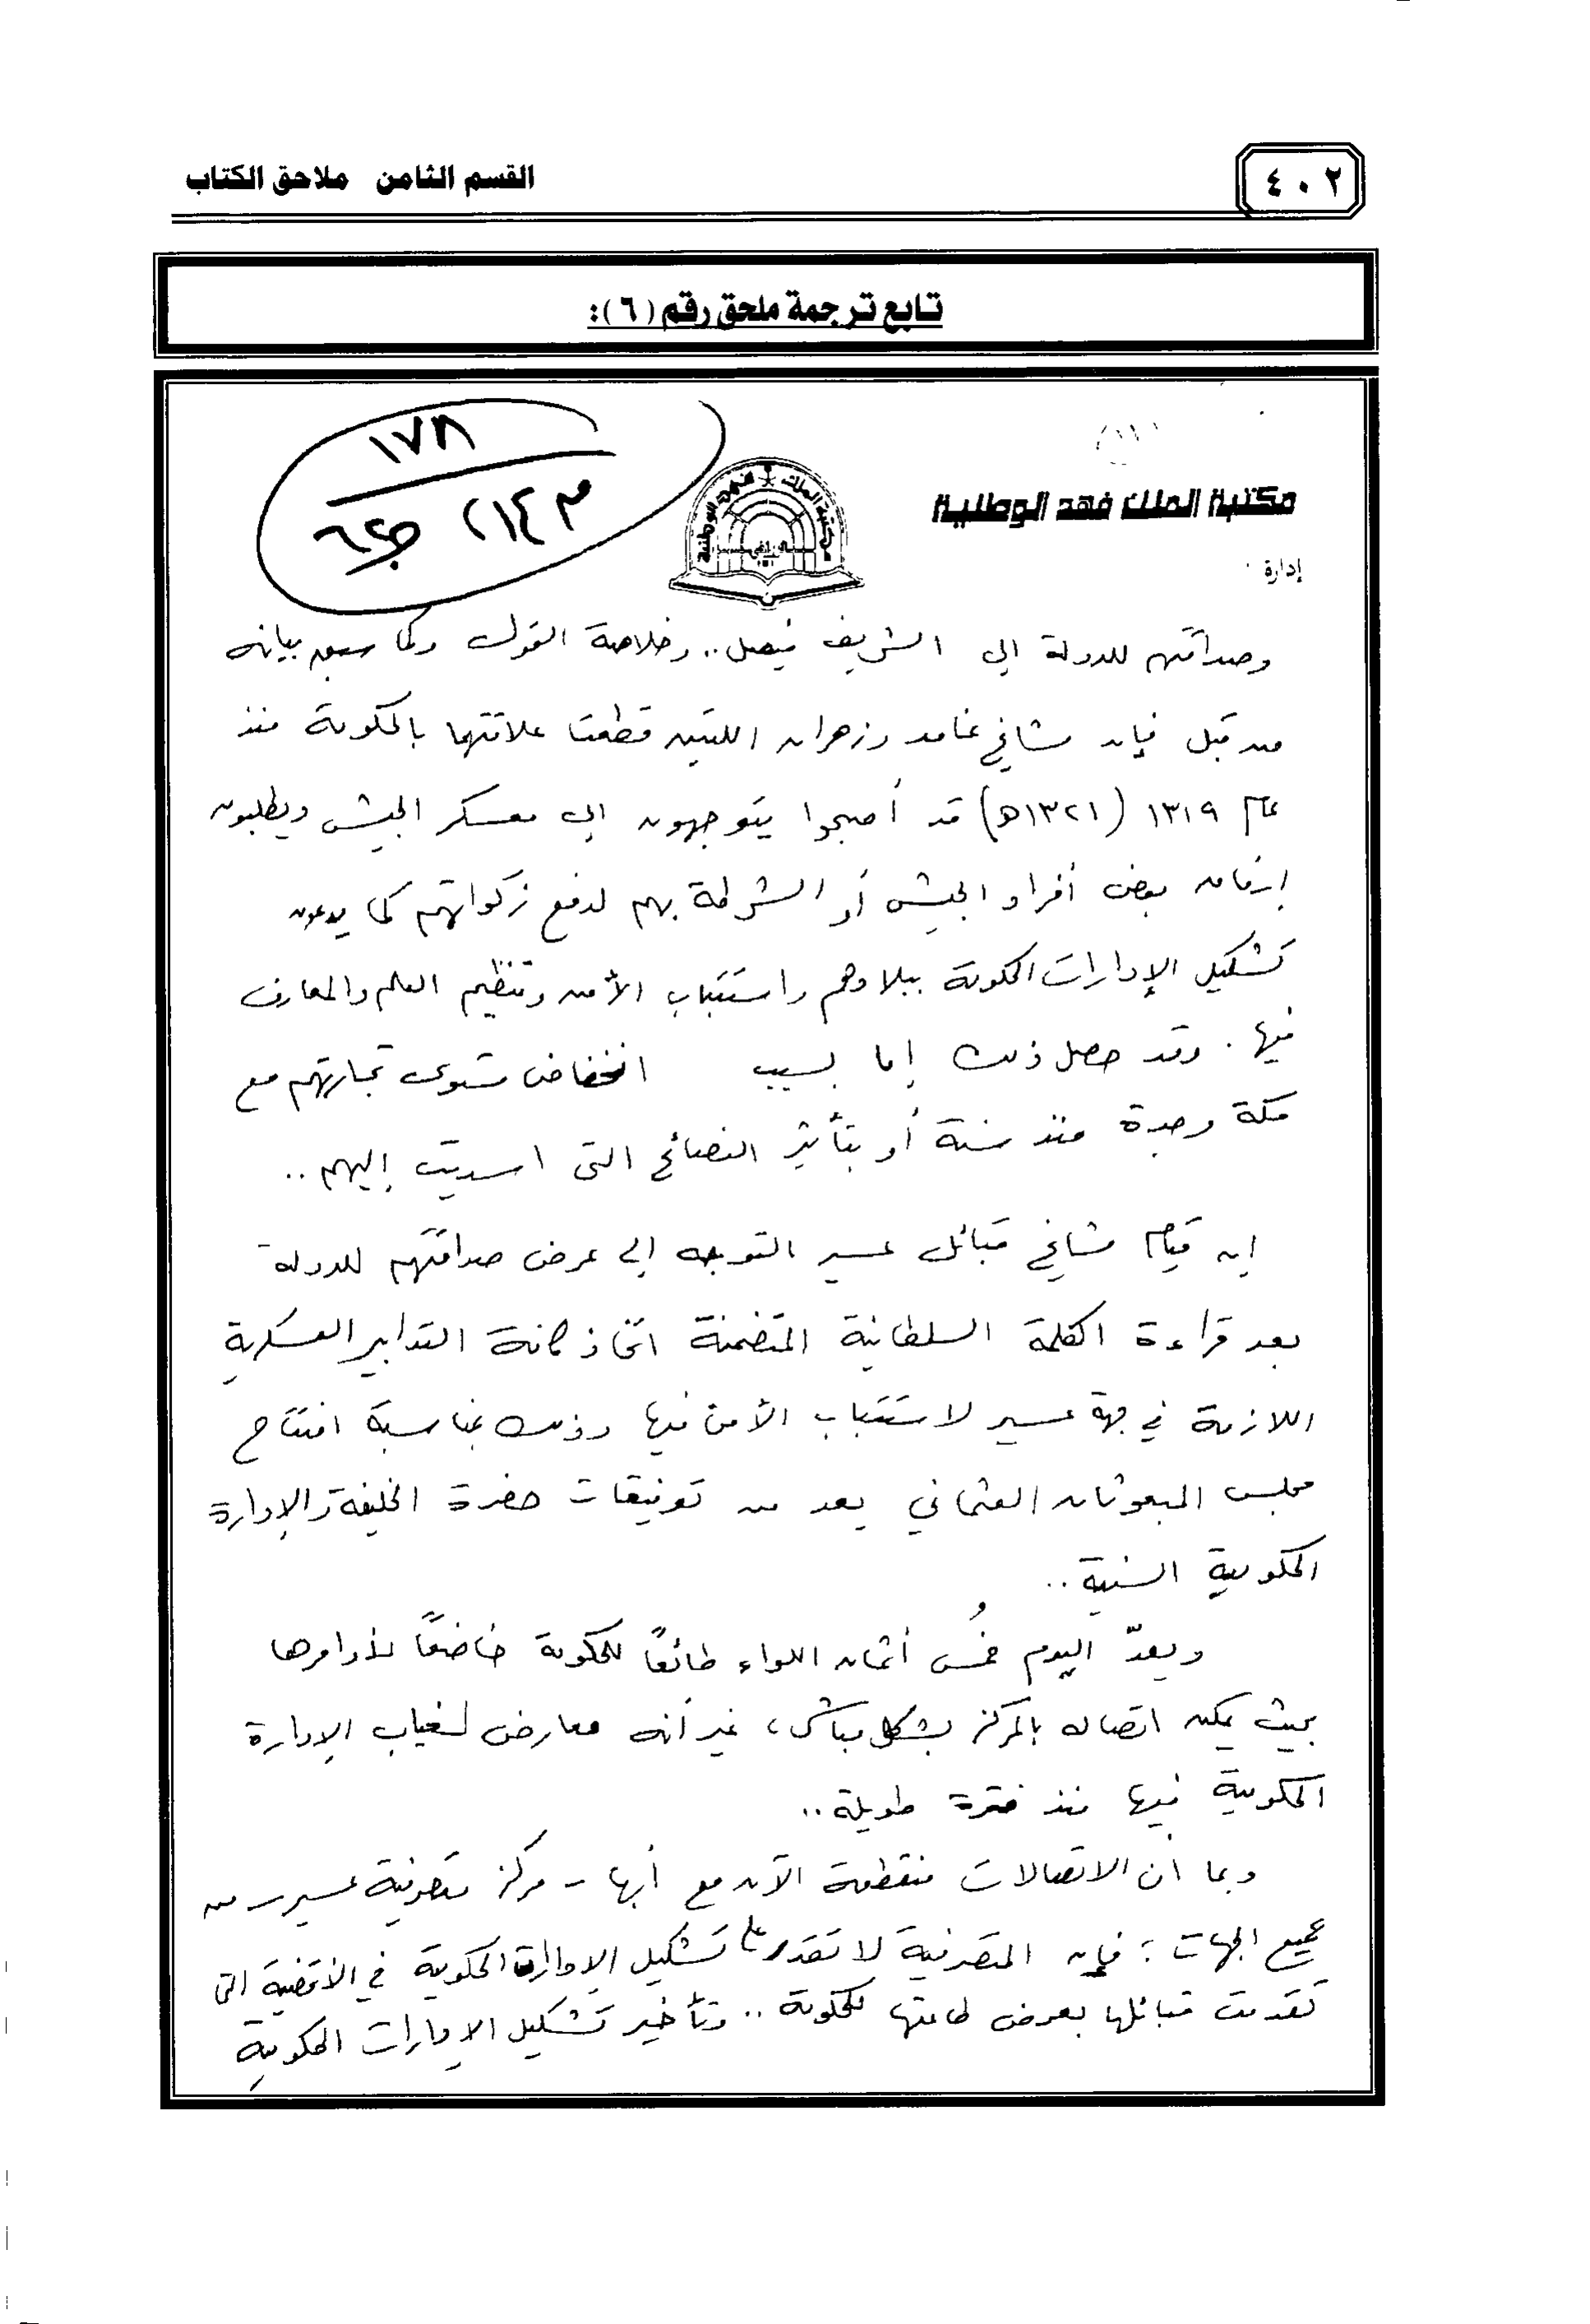 ٤٠٢
القسم الثامن ملاحق الكتاب
تابع ترجمة ملحق رقم (٦):
١٧٨
مكتبة الملك فهد الوطنية
إدارة
وصداقتهم للدولة إلى الشريف فيصل.. وخلاصة القول وكما سبق بيانه
من قبل فإن مشايخ غامد وزهران اللتين قطعتا علاقتهما بالحكومة منذ
عام ١٣١٩ (١٣٢١هـ) قد أصبحوا يتوجهون إلى معسكر الجيش ويطلبون
إرفاق بعض أفراد الجيش أو الشرطة بهم لدفع زكواتهم كما يدعون
تشكيل الإدارات الحكومة ببلادهم واستتباب الأمن وتنظيم العلم والمعارف
فيها. وقد حصل ذلك إما بسبب انخفاض مستوى تجارتهم مع
مكة وجدة منذ سنة أو بتأثير النصائح التي اسديت إليهم..
إن قيام مشايخ قبائل عسير التوجه إلى عرض صداقتهم للدولة
بعد قراءة الكلمة السلطانية المتضمنة اتخاذ كافة التدابير العسكرية
اللازمة في جهة عسير لاستتباب الأمن فيها وذلك بمناسبة افتتاح
مجلس المبعوثان العثماني يعد من توفيقات حضرة الخليفة والإدارة
الحكومية السنية..
ويعدّ اليوم خُمس أثمان اللواء طائعًا للحكومة خاضعًا لأوامرها
بحيث يمكن اتصاله بالمركز بشكل مباشر، غير أنه معارض لغياب الإدارة
الحكومية فيها منذ فترة طويلة..
وبما أن الاتصالات منقطعة الآن مع أبها - مركز متصرفية عسير - من
جميع الجهات؛ فإن المتصرفية لا تقدر على تشكيل الإدارة الحكومية في الأقضية التي
تقدمت قبائلها بعرض طاعتها للحكومة.. وتأخير تشكيل الإدارات الحكومية